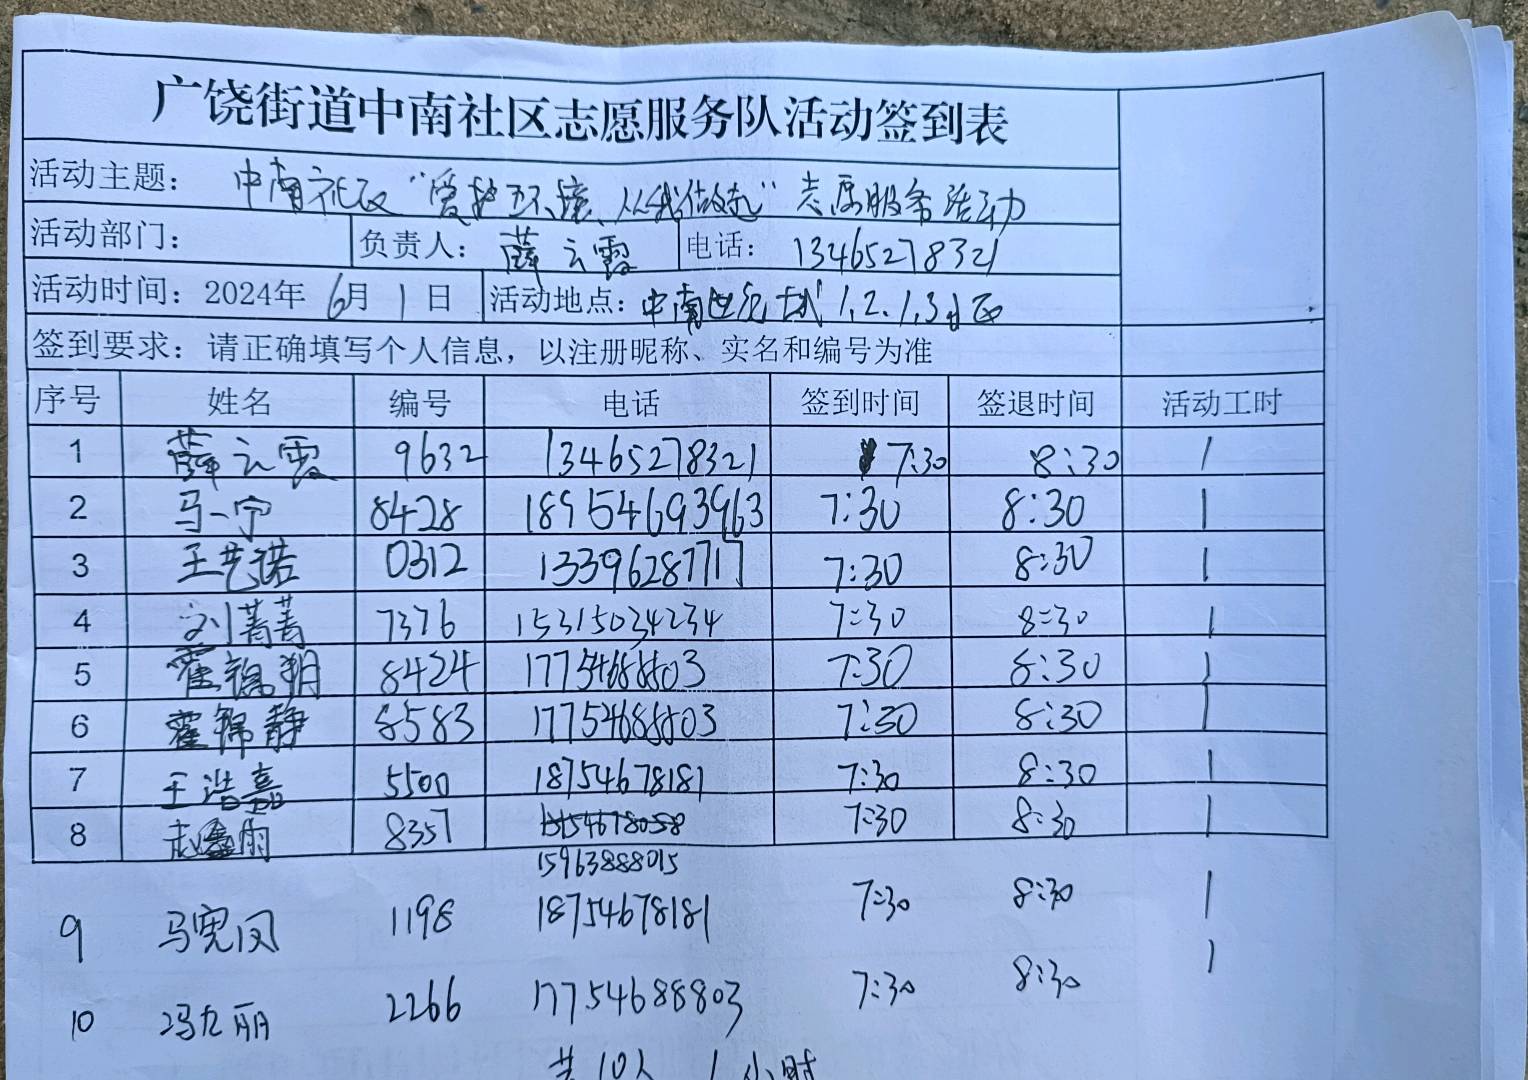 广饶街道中南社区志愿服务队活动签到表
活动主题： 中南社区“爱护环境、从我做起”志愿服务活动
活动部门： 负责人： 薛云霞 电话： 13465278321
活动时间：2024年 6月 1日 活动地点：中南世纪城1.2.1.3小区
签到要求：请正确填写个人信息，以注册昵称、实名和编号为准
序号 姓名 编号 电话 签到时间 签退时间 活动工时
1 薛云霞 9632 13465278321 7:30 8:30 1
2 马一宁 8428 18954693963 7:30 8:30 1
3 王艺诺 0312 13396287717 7:30 8:30 1
4 刘菁菁 7376 15315034234 7:30 8:30 1
5 霍锦翔 8424 17754688803 7:30 8:30 1
6 霍锦静 8583 17754688803 7:30 8:30 1
7 王浩嘉 5500 18754678181 7:30 8:30 1
8 赵雨 8357 7:30 8:30 1
15963888015
9 马宪凤 1198 18754678181 7:30 8:30 1
10 冯九丽 2266 17754688803 7:30 8:30 1
共10人 1小时